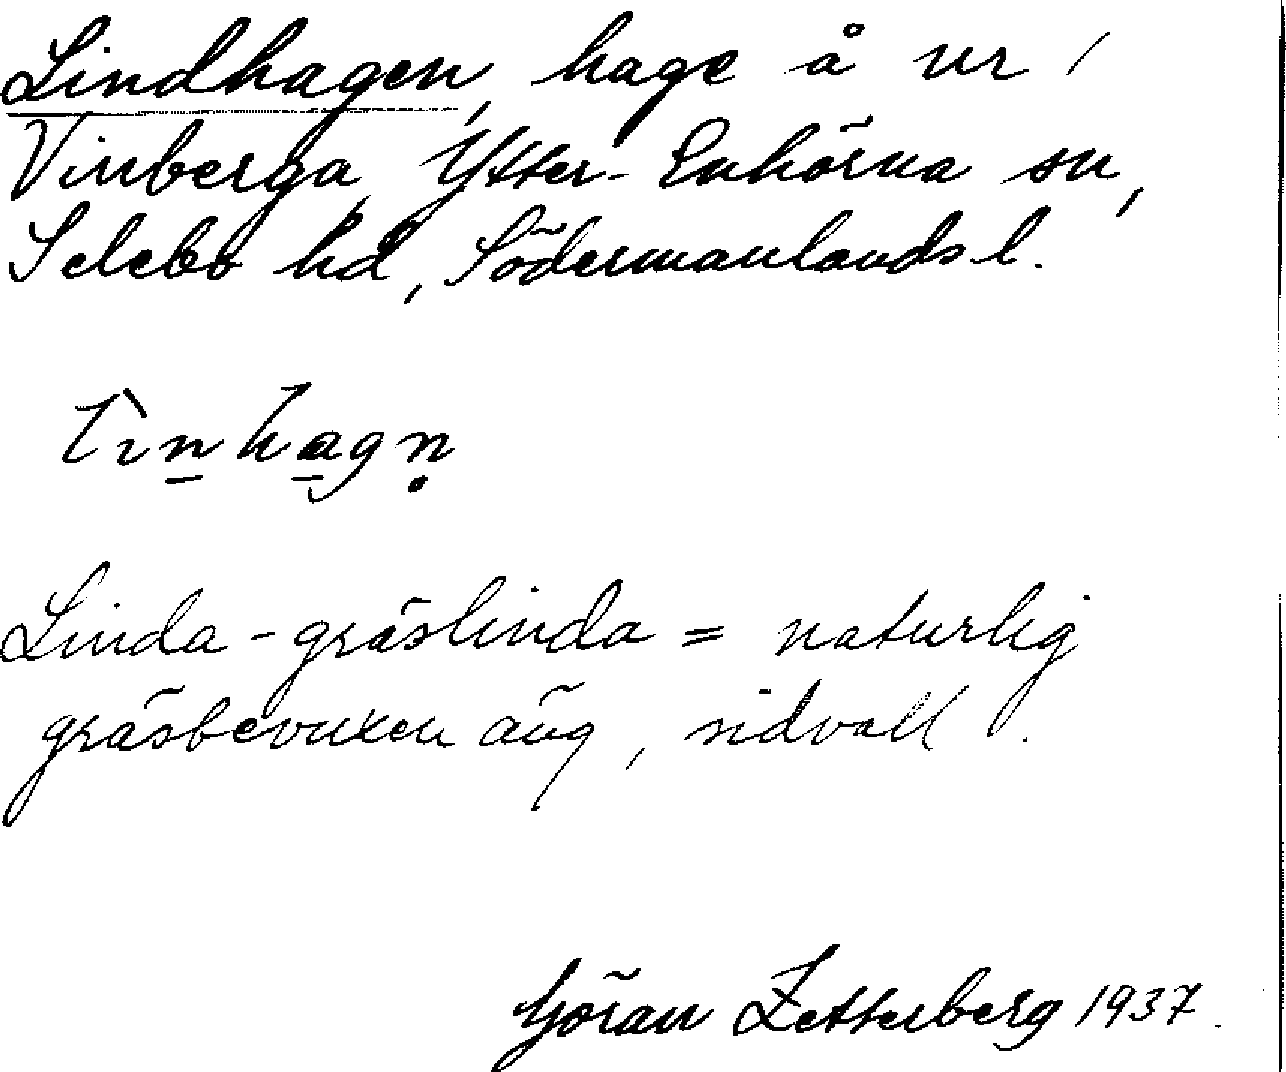 Lindhagen, hage å nr 1
Vinberga, Ytter-Enhörna sn,
Selebo hd, Södermanlands l.
Linda - gräslinda = naturlig
gräsbevuxen äng, sidvall.
Göran Zetterberg 1937.